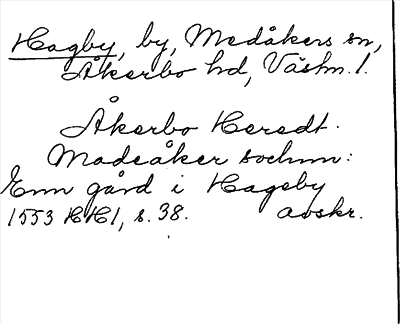 Hagby, by, Medåkers sn,
Åkerbo hd, Västm. l.
Åkerbo Heredt.
Madeåker sochnn:
Enn gård i Hageby
1553 HH1, s. 38. avskr.